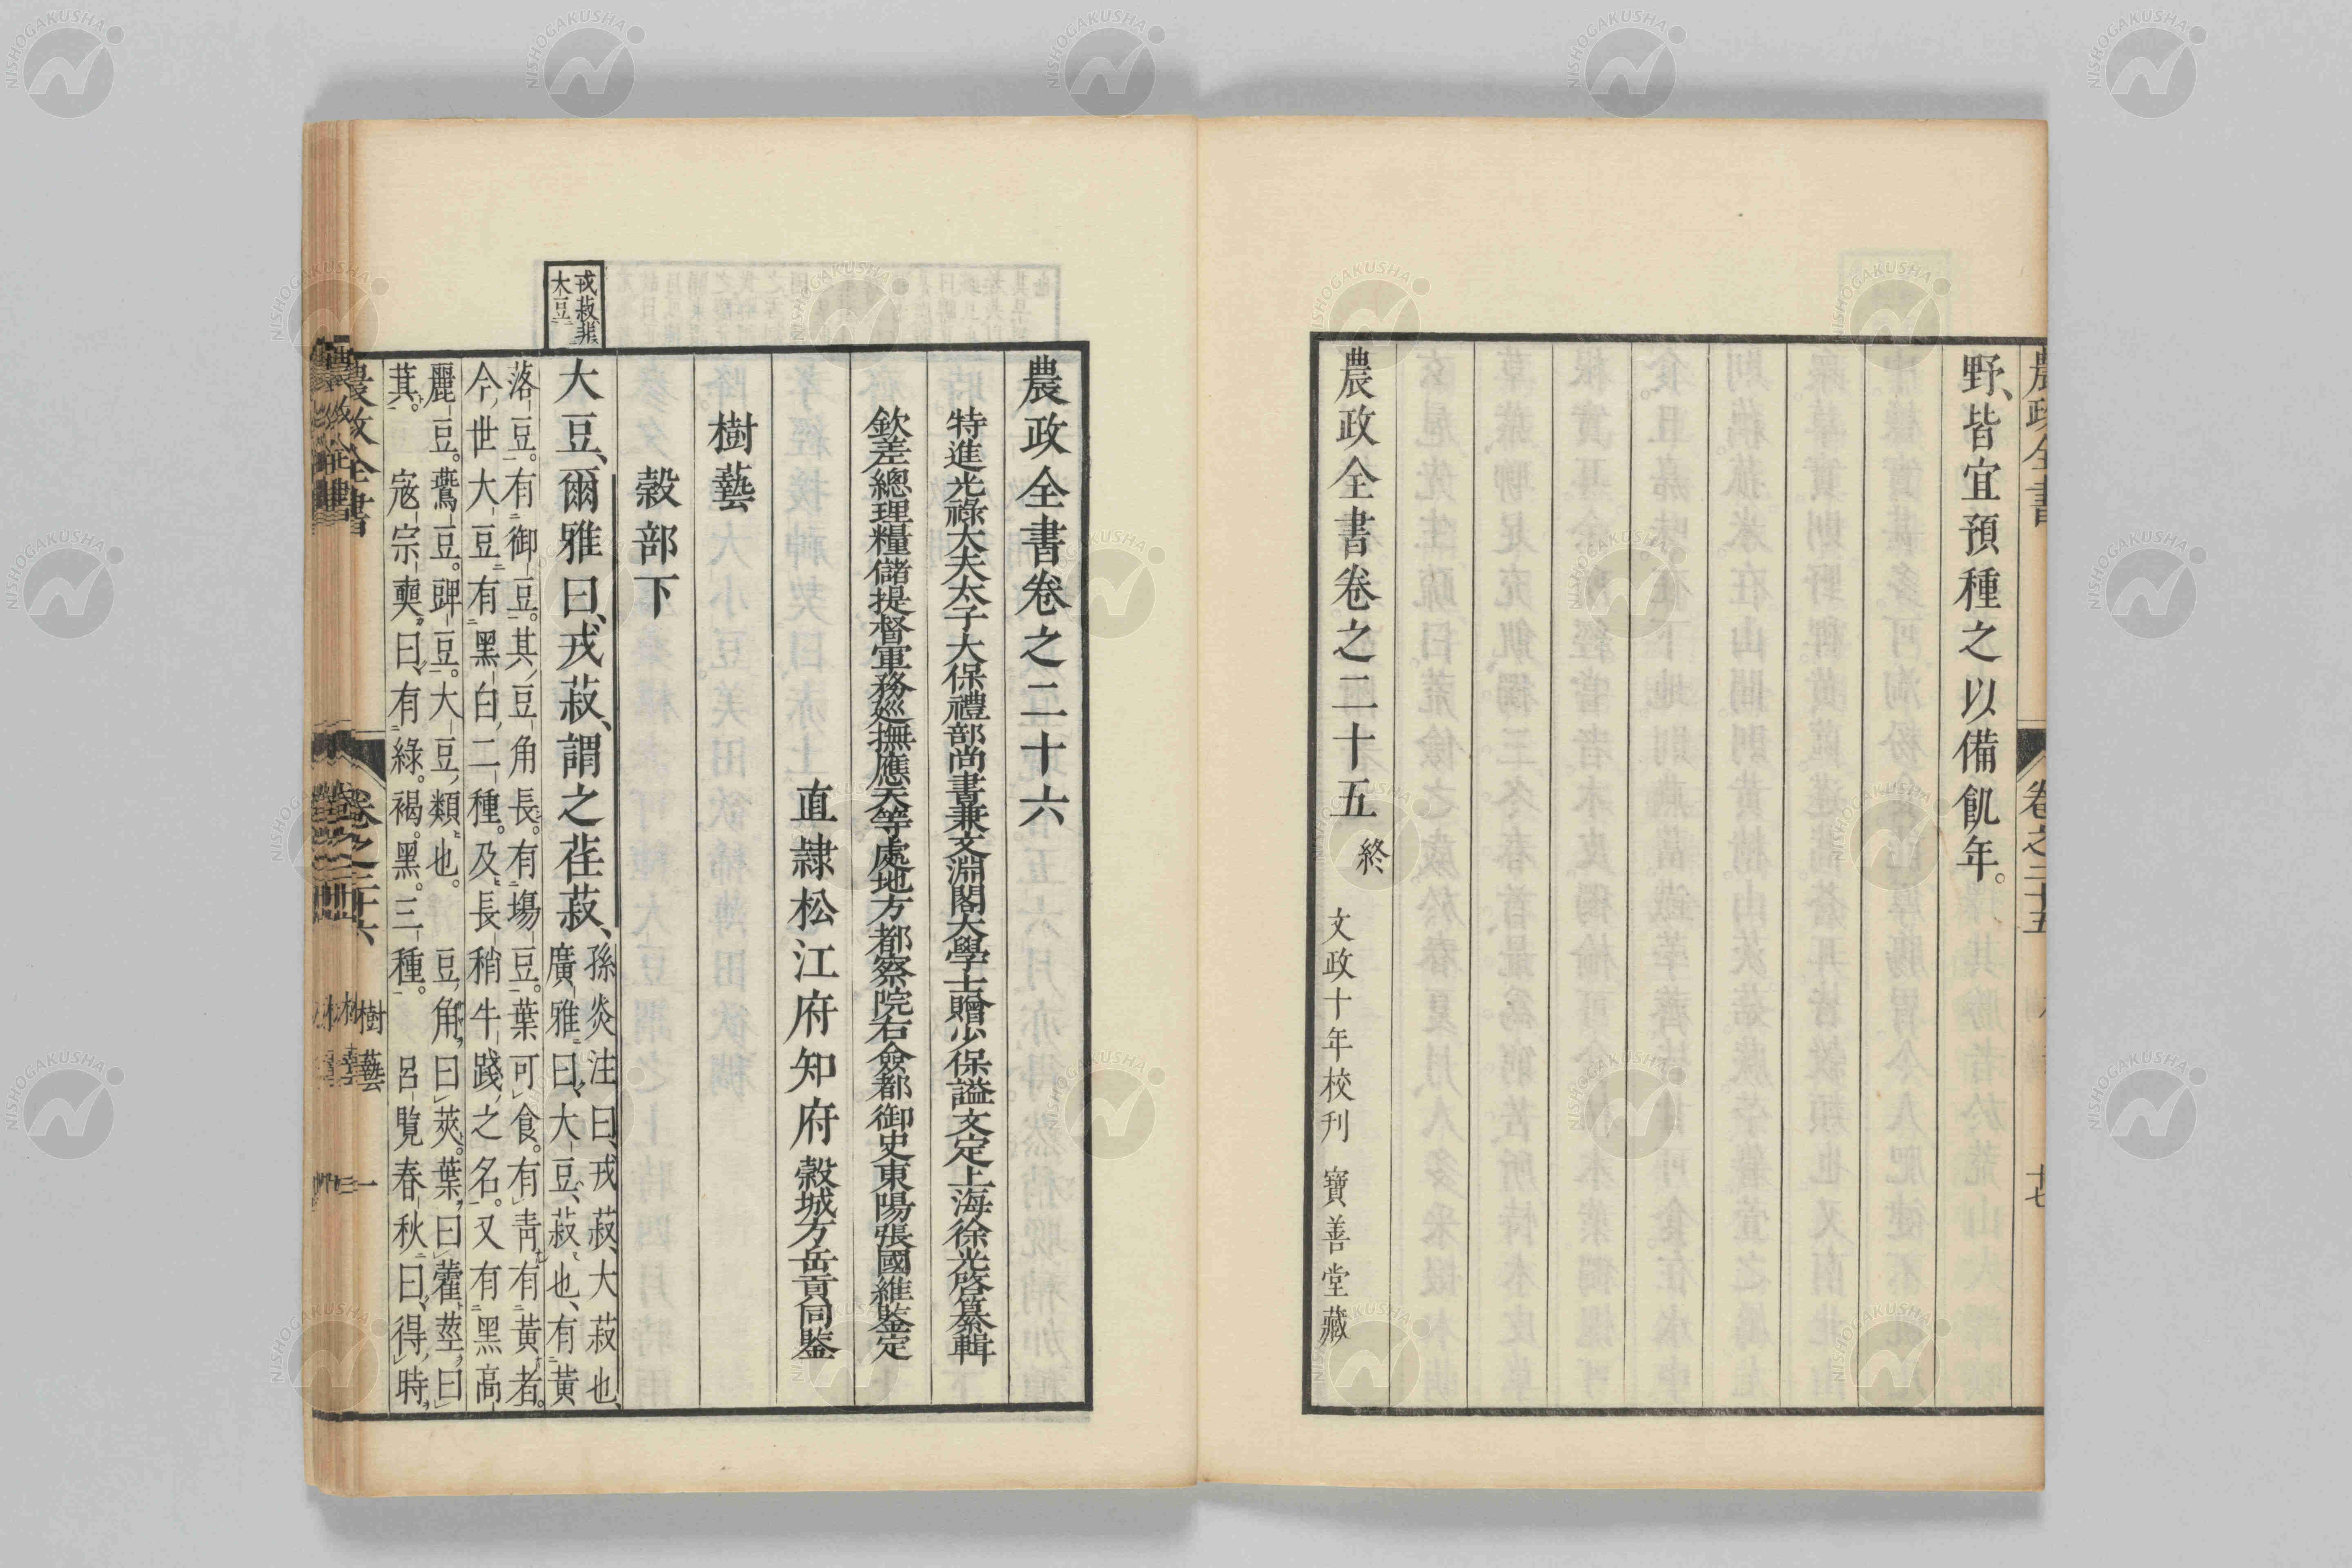 野、皆宜預種之以備飢年。
農政全書卷之二十五 終 文政十年校刊 寶善堂藏
農政全書
卷之二十五
十七
農政全書卷之二十六
特進光祿大夫太子大保禮部尚書兼文淵閣大學士贈少保謚文定上海徐光啓纂輯
欽差總理糧儲提督軍務廵撫應天等處地方都察院右僉都御史東陽張國維鑒定
直隷松江府知府穀城方岳貢同鑒
樹藝
穀部下
戎菽非
大豆
大豆、爾雅曰、戎菽、謂之荏菽、
孫炎注曰、戎菽、大菽也、
廣雅曰、大豆、菽也、有黃
落豆。有御豆。其豆角長。有塲豆。葉可食。有青。有黃者。
今世大豆有黑白二種。及長稍牛踐之名。又有黑高
麗豆。鷰豆。豍豆。大豆類也。豆角曰莢。葉曰藿莖曰
萁。寇宗奭曰、有綠。褐。黑。三種。呂覽春秋曰、得時
農政全書
卷之二十六
樹藝
一
NISHOGAKUSHA